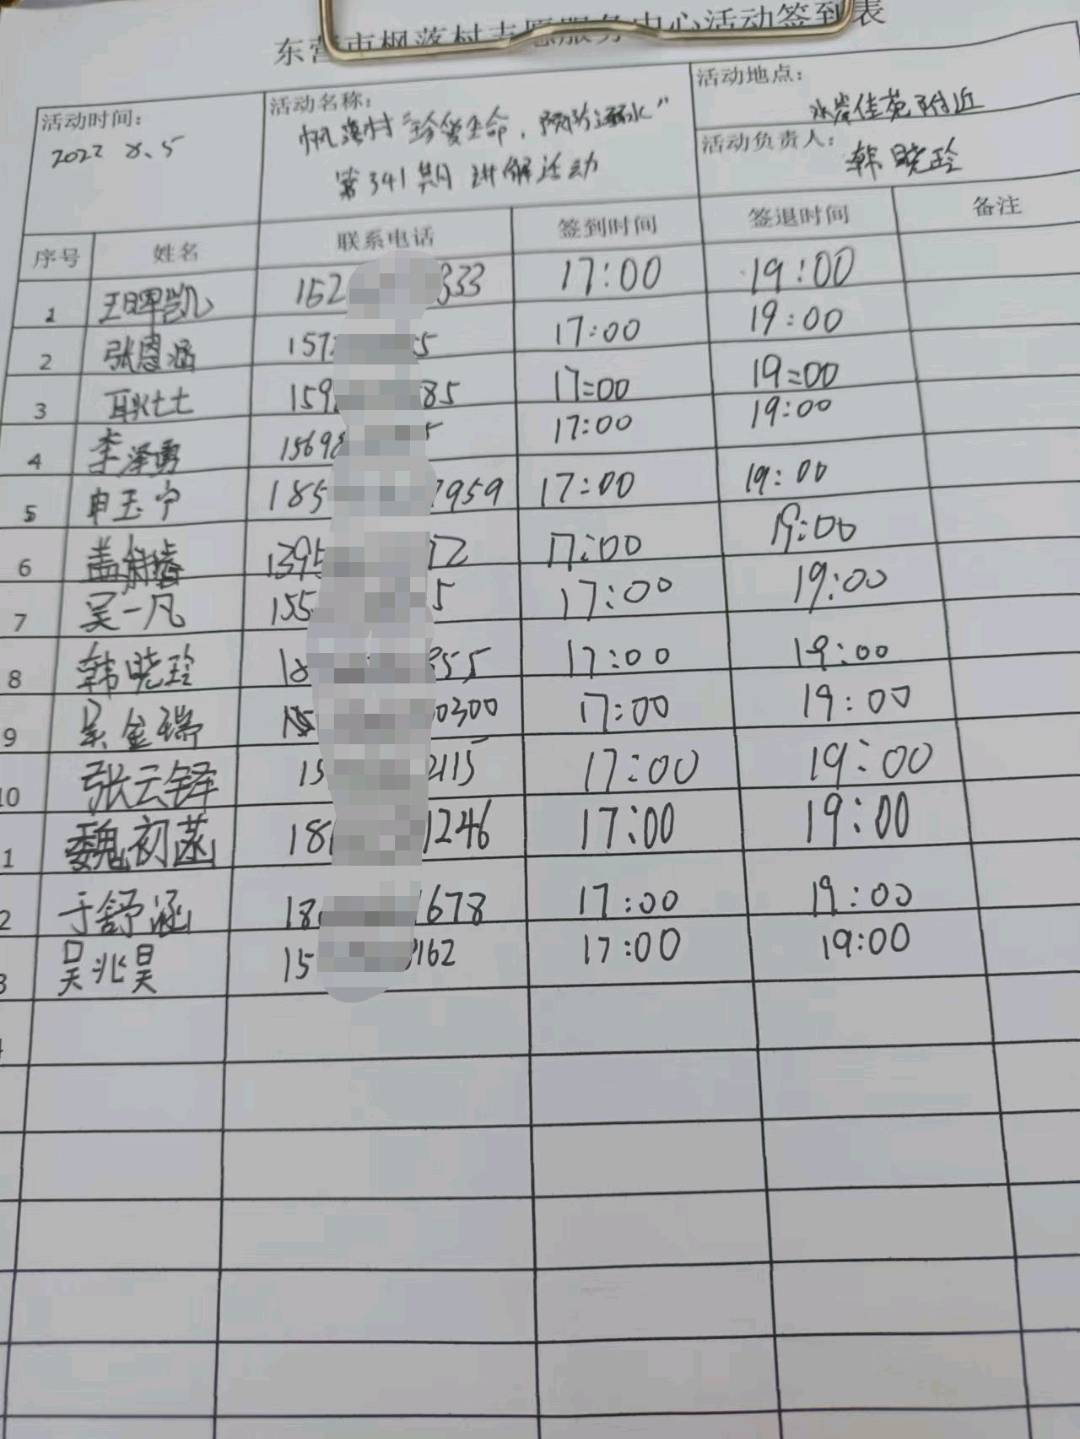 东营市枫落村志愿服务中心活动签到表
活动时间：
2022 8.5
活动名称：
枫落村“珍爱生命，预防溺水”
第341期讲解活动
活动地点：
水岸佳苑附近
活动负责人：
韩晓玲
序号 姓名 联系电话 签到时间 签退时间 备注
1 王晖凯 152 333 17:00 19:00
2 张恩涵 157 5 17:00 19:00
3 耿壮士 159 85 17:00 19:00
4 李泽勇 15698 5 17:00 19:00
5 申玉宁 185 7959 17:00 19:00
6 盖 1395 72 17:00 19:00
7 吴一凡 155 5 17:00 19:00
8 韩晓玲 18 955 17:00 19:00
9 吴金瑞 15 00300 17:00 19:00
10 张云铎 15 2115 17:00 19:00
1 魏初菡 18 1246 17:00 19:00
2 于舒涵 18 1678 17:00 19:00
3 吴兆昊 15 9162 17:00 19:00